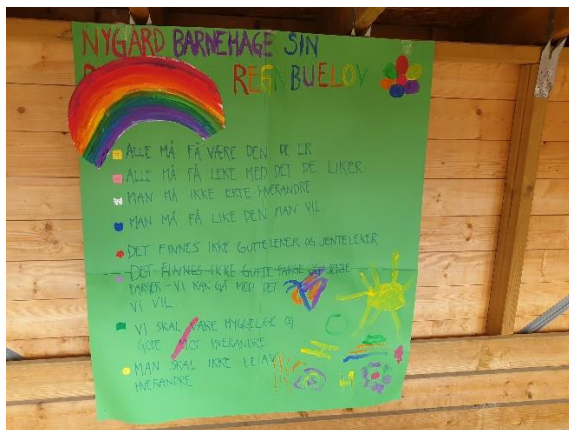 NYGÅRD BARNEHAGE SIN
REGNBUELOV
ALLE MÅ FÅ VÆRE DEN DE ER
ALLE MÅ FÅ LEKE MED DET DE LIKER.
MAN MÅ IKKE ERTE HVERANDRE
MAN MÅ FÅ LIKE DEN MAN VIL
DET FINNES IKKE GUTTELEKER OG JENTELEKER
DET FINNES IKKE GUTTE FARGE OG JENTE
FARGER - VI KAN GÅ MED DET
VI VIL.
VI SKAL VÆRE HYGGELIGE OG
GODE MOT HVERANDRE
MAN SKAL IKKE
HVERANDRE